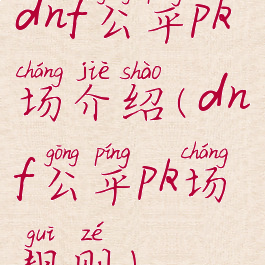 dnf公平pk
cháng jiè shào
场介绍(dn
gōng píng cháng
f公平pk场
guī zé
规则)